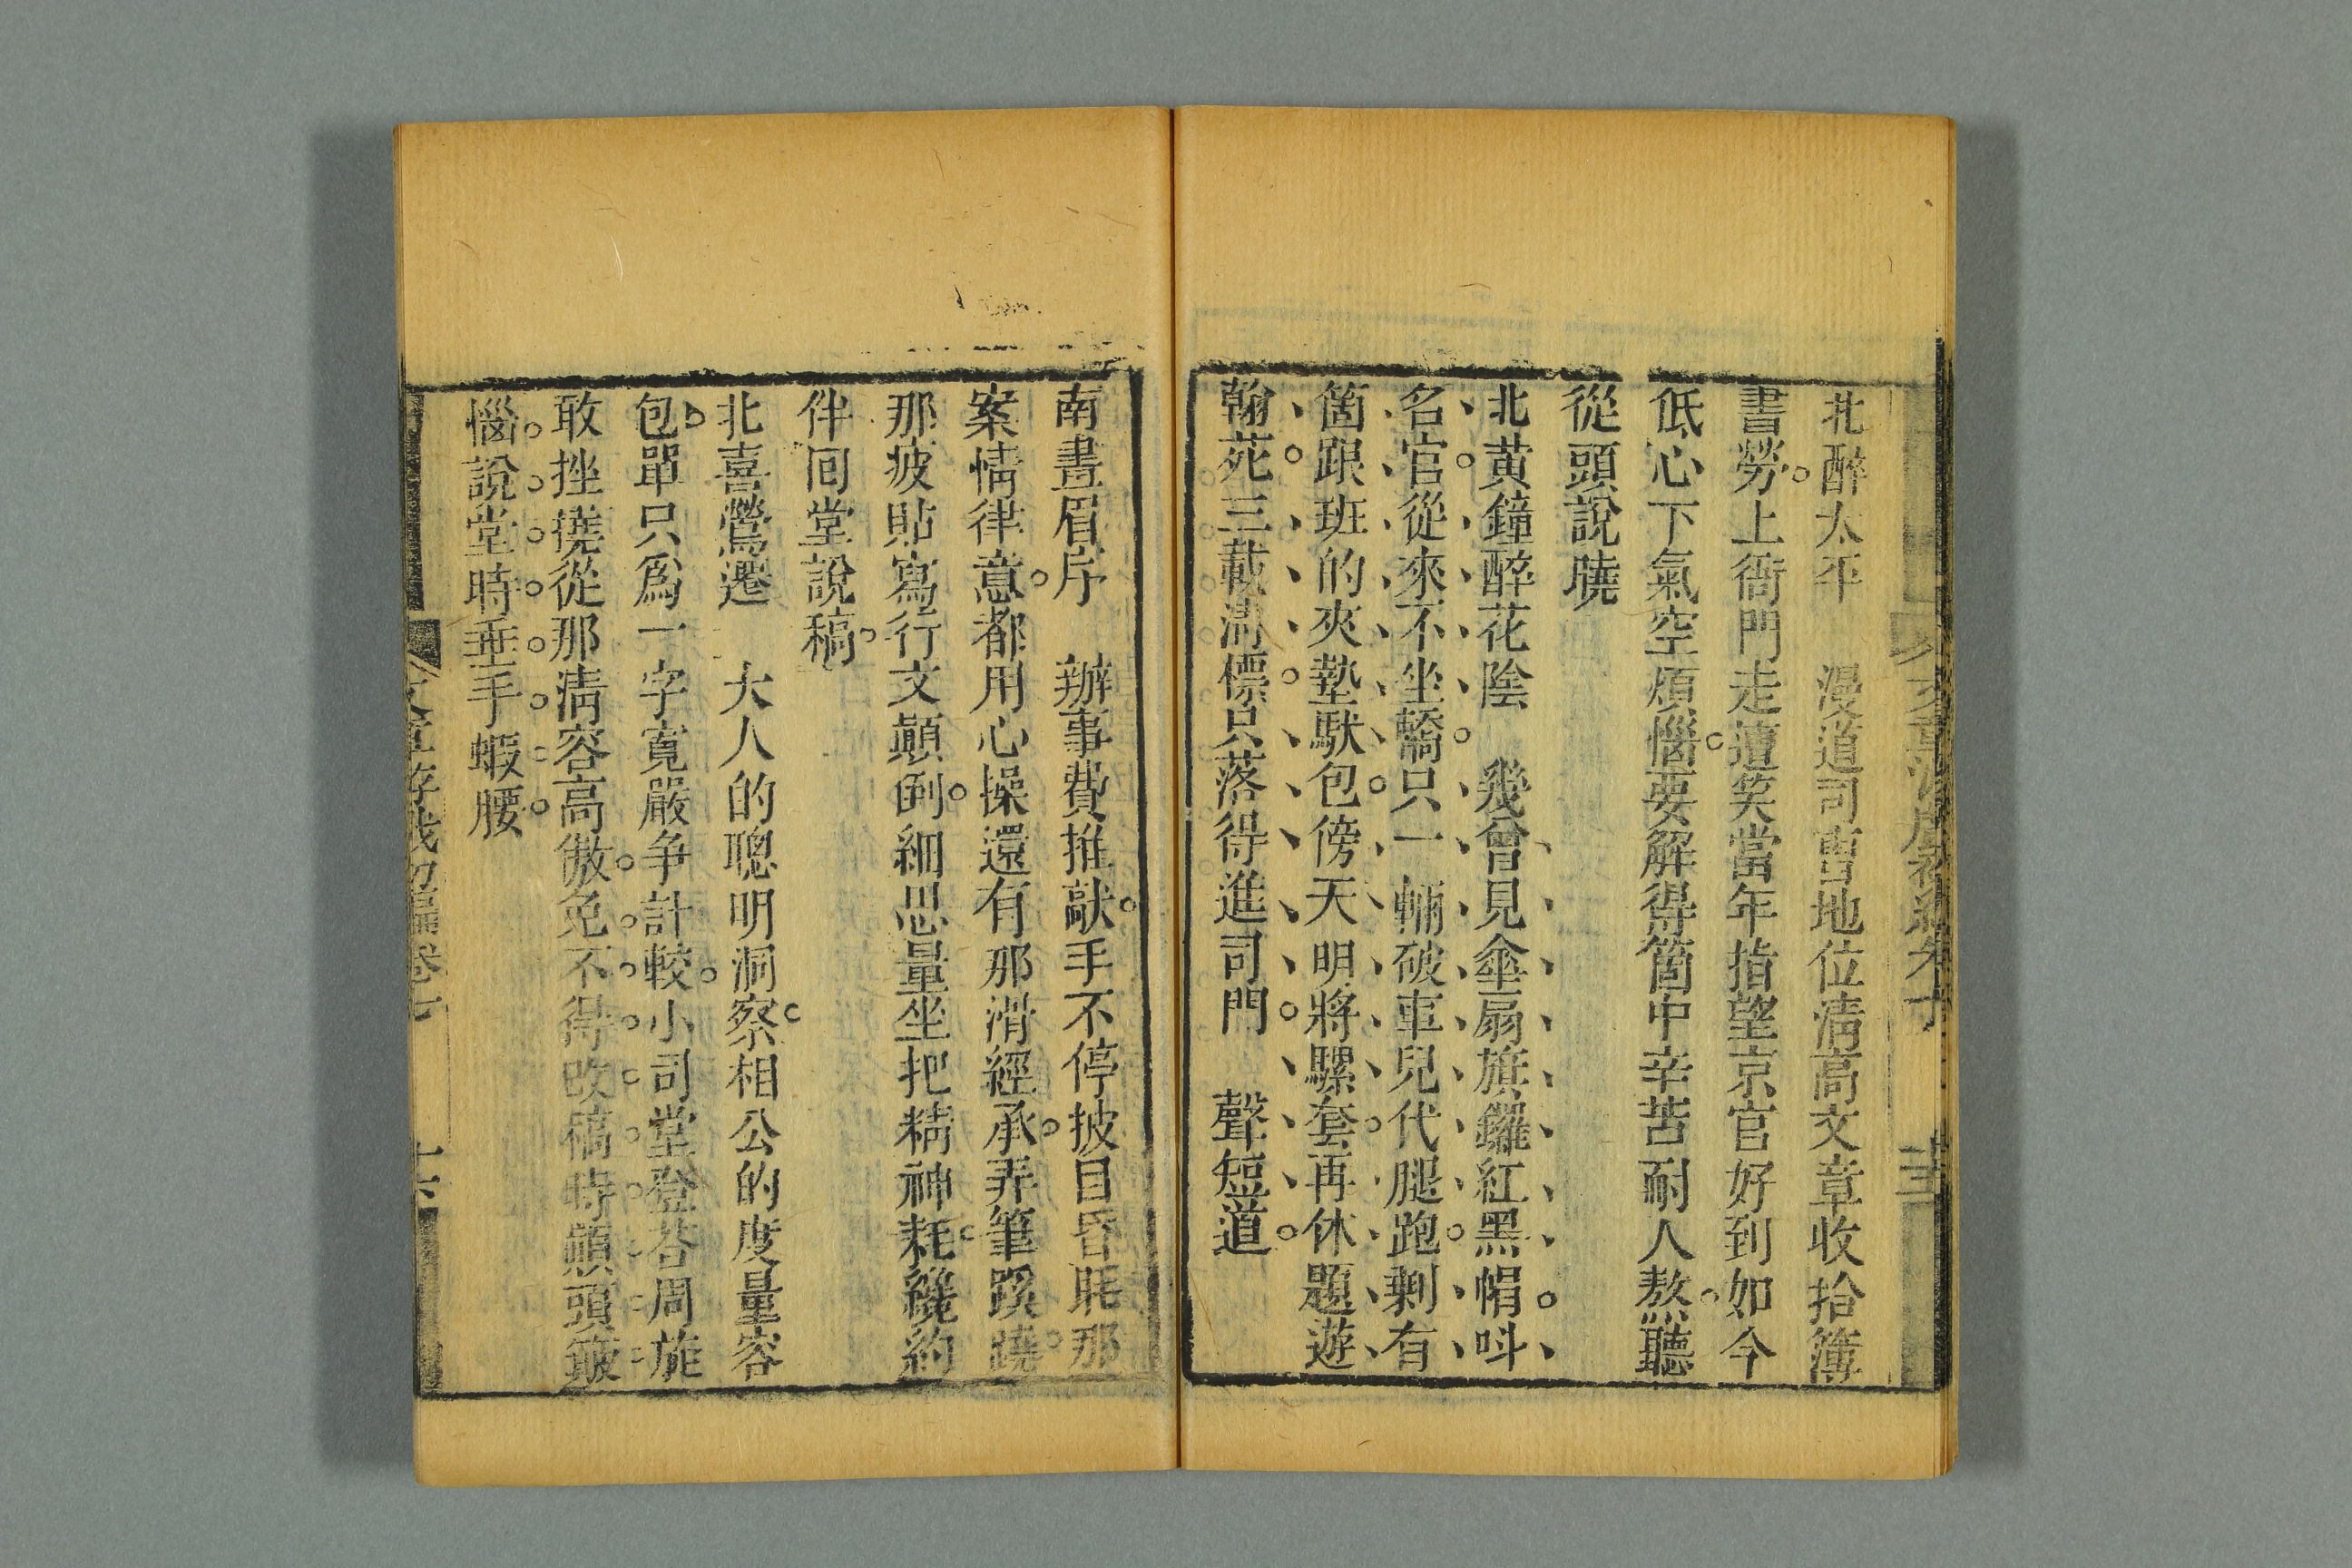 北醉太平　漫道司曹地位淸高文章收拾簿
書勞上衙門走遭笑當年指望京官好到如今
低心下氣空煩惱要解得箇中辛苦耐人熬聽
從頭說曉
北黃鐘醉花陰　幾曾見傘扇旗鑼紅黑帽呌
名官從來不坐轎只一輛破車兒代腿跑剩有
箇跟班的夾墊馱包傍天明將騾套再休題遊
翰苑三載淸標只落得進司門　聲短道
南畫眉序　辦事費推敲手不停披目昏眊那
案情律意都用心操還有那滑經承弄筆蹊蹺
那疲貼寫行文顚倒細思量坐把精神耗纔約
伴囘堂說稿
北喜鶯遷　大人的聰明洞察相公的度量容
包單只爲一字寬嚴爭計較小司堂登荅周旋
敢挫撓從那淸容高傲免不得改稿時顚頭簸
惱說堂時垂手蝦腰